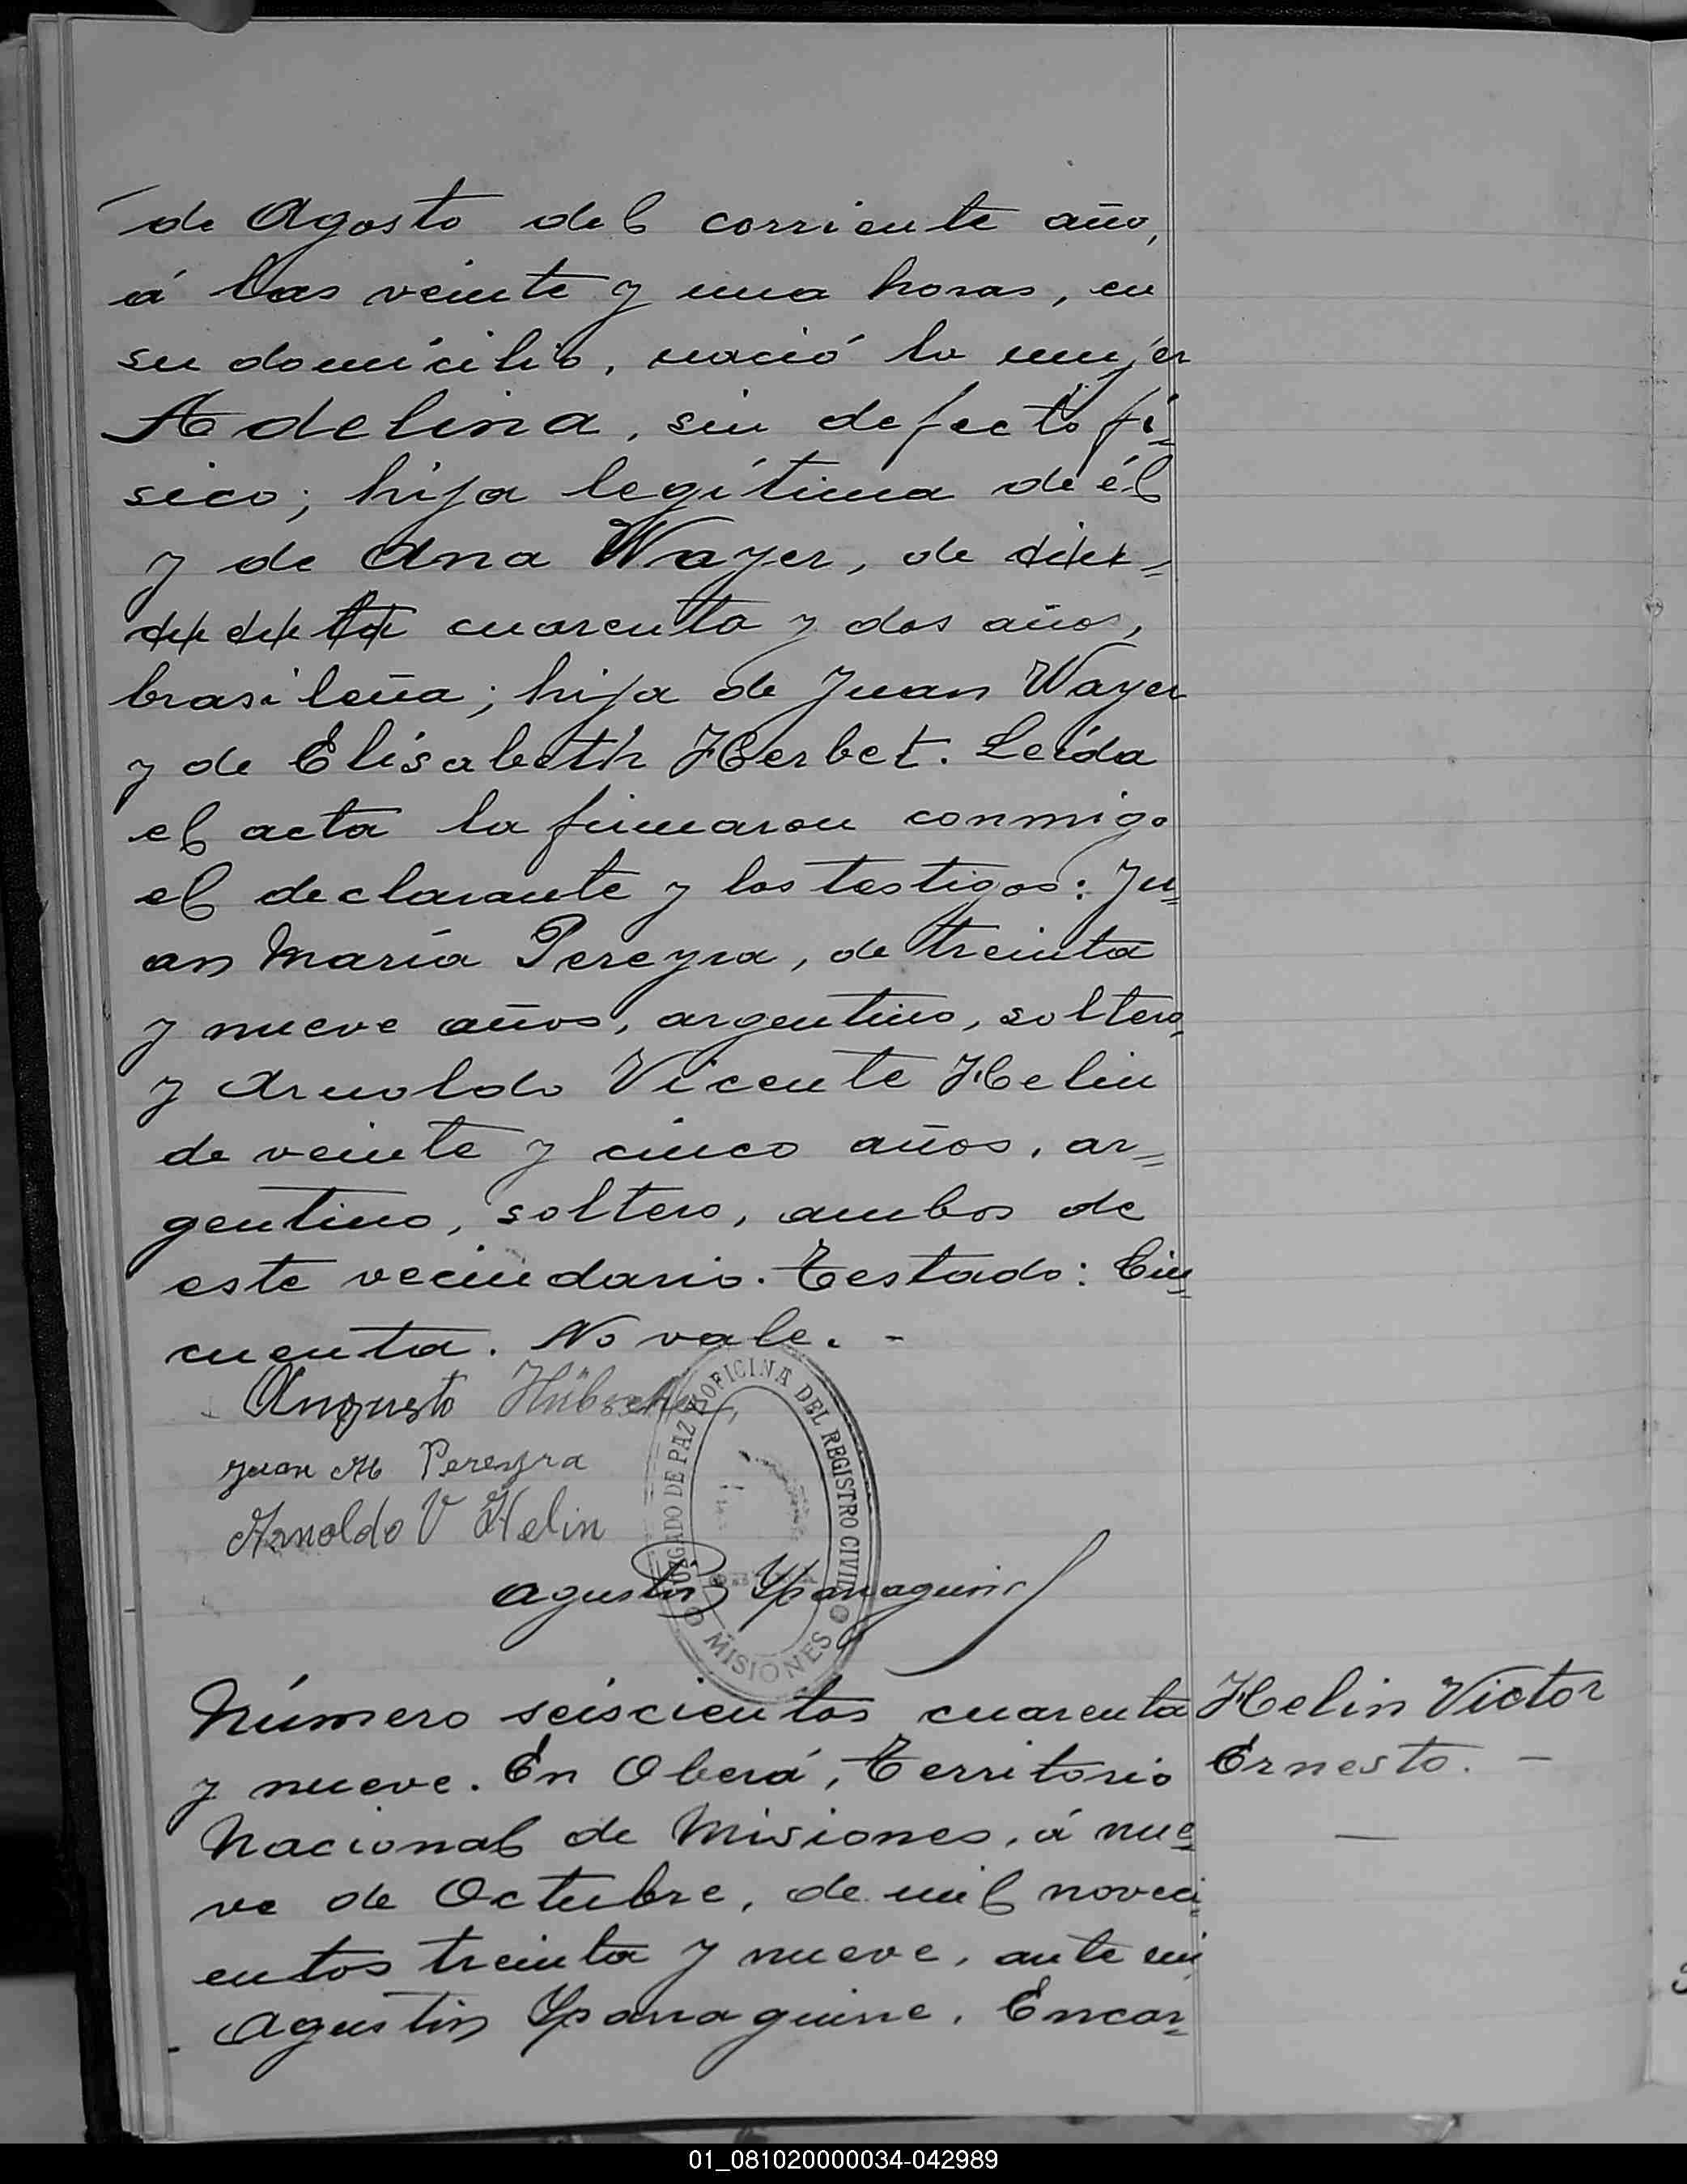 de Agosto del corriente año,
á las veinte y una horas, en
su domicilio, nació la mujer
Adelina, sin defecto fí=
sico; hija legítima de él
y de Ana Wayer, de
cuarenta y dos años,
brasileña; hija de Juan Wayer
y de Elisabeth Herbet. Leída
el acta la firmaron conmigo
el declarante y los testigos: Ju=
an María Pereyra, de treinta
y nueve años, argentino, soltero,
y Arnoldo Vicente Helin
de veinte y cinco años, ar=
gentino, soltero, ambos de
este vecindario. Testado: Cin=
cuenta. No vale. -
Augusto Hübscher
Juan M Pereyra
Arnoldo V Helin
JUZGADO DE PAZ Y OFICINA DEL REGISTRO CIVIL
MISIONES
Agustin Yparraguirre
Número seiscientos cuarenta
y nueve. En Oberá, Territorio
Nacional de Misiones, á nue=
ve de Octubre, de mil noveci=
entos treinta y nueve, ante mi
Agustin Yparraguirre, Encar=
Helin Victor
Ernesto. -
01_081020000034-042989